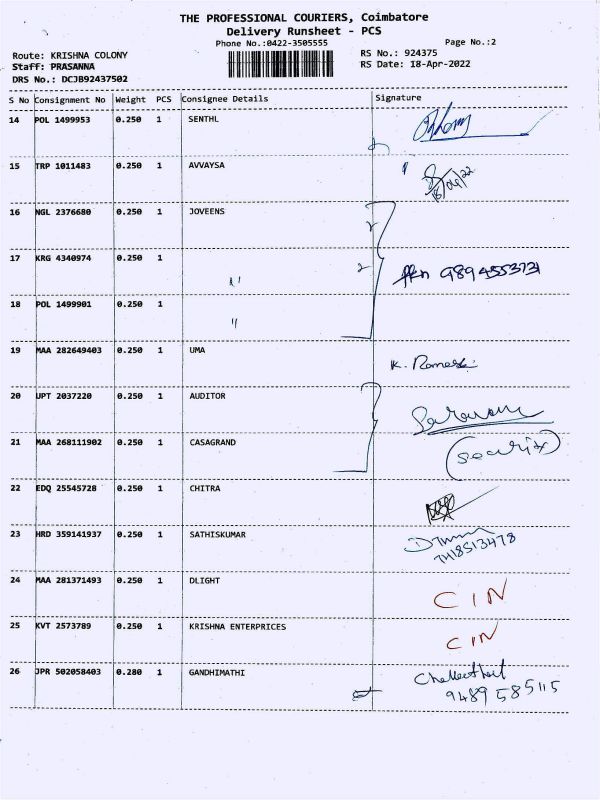 THE PROFESSIONAL COURIERS, Coimbatore
Delivery Runsheet - PCS
Phone No.:0422-3505555 Page No.:2
Route: KRISHNA COLONY RS No.: 924375
Staff: PRASANNA RS Date: 18-Apr-2022
DRS No.: DCJB92437502
S No Consignment No Weight PCS Consignee Details Signature
14 POL 1499953 0.250 1 SENTHL
15 TRP 1011483 0.250 1 AVVAYSA 18/04/22
16 NGL 2376680 0.250 1 JOVEENS
17 KRG 4340974 0.250 1 " 9894553731
18 POL 1499901 0.250 1 "
19 MAA 282649403 0.250 1 UMA K. Ramesh
20 UPT 2037220 0.250 1 AUDITOR
21 MAA 268111902 0.250 1 CASAGRAND
22 EDQ 25545728 0.250 1 CHITRA
23 HRD 359141937 0.250 1 SATHISKUMAR
7418513478
24 MAA 281371493 0.250 1 DLIGHT CIN
25 KVT 2573789 0.250 1 KRISHNA ENTERPRICES CIN
26 JPR 502058403 0.280 1 GANDHIMATHI
9489585115